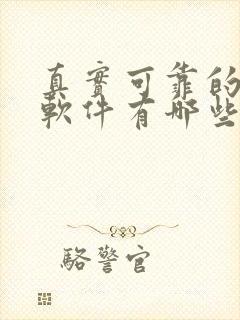 真實可靠的
軟件有哪些
駱警官